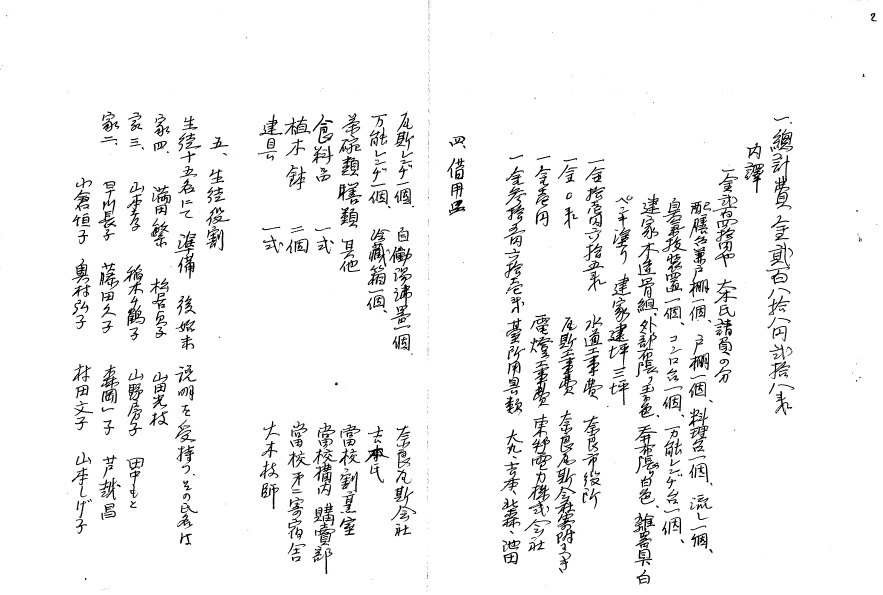 2
一、總計費 金貳百八拾八円貳拾八錢
内譯
一金貳百四拾円也 大木氏請負の分
配膳台兼戸棚一個、戸棚一個、料理台一個、流し一個、
臭気抜装置一個、コンロ台一個、万能レンヂ台一個、
建家木造骨組、外部布張り玉子色、天井布張り白色、雑器具白
ペンキ塗り 建家建坪三坪
一金拾壱円六拾五錢 水道工事費 奈良市役所
一金〇錢 瓦斯工事費 奈良瓦斯会社寄附につき
一金壱円 電燈工事費 東邦電力株式会社
一金参拾五円六拾壱錢 臺所用具類 大丸、吉本、北森、池田
四、借用品
瓦斯レンヂ一個、自働湯沸器一個、 奈良瓦斯会社
万能レンヂ一個、冷藏箱一個、 吉本氏
茶碗類膳類其他 當校割烹室
食料品 一式 當校構内購賣部
植木鉢 二個 當校第二寄宿舎
建具 一式 大木技師
五、生徒役割
生徒十五名にて準備 後始末 説明を受持つ、その氏名は
家四、 満田繁 松居貞子 山田光枝
家三、 山本孝 稲木千鶴子 山野房子 田中もと
家二、 早川長子 藤田久子 森岡一子 芦越昌
小倉恒子 奥村弘子 村田文子 山本しげ子